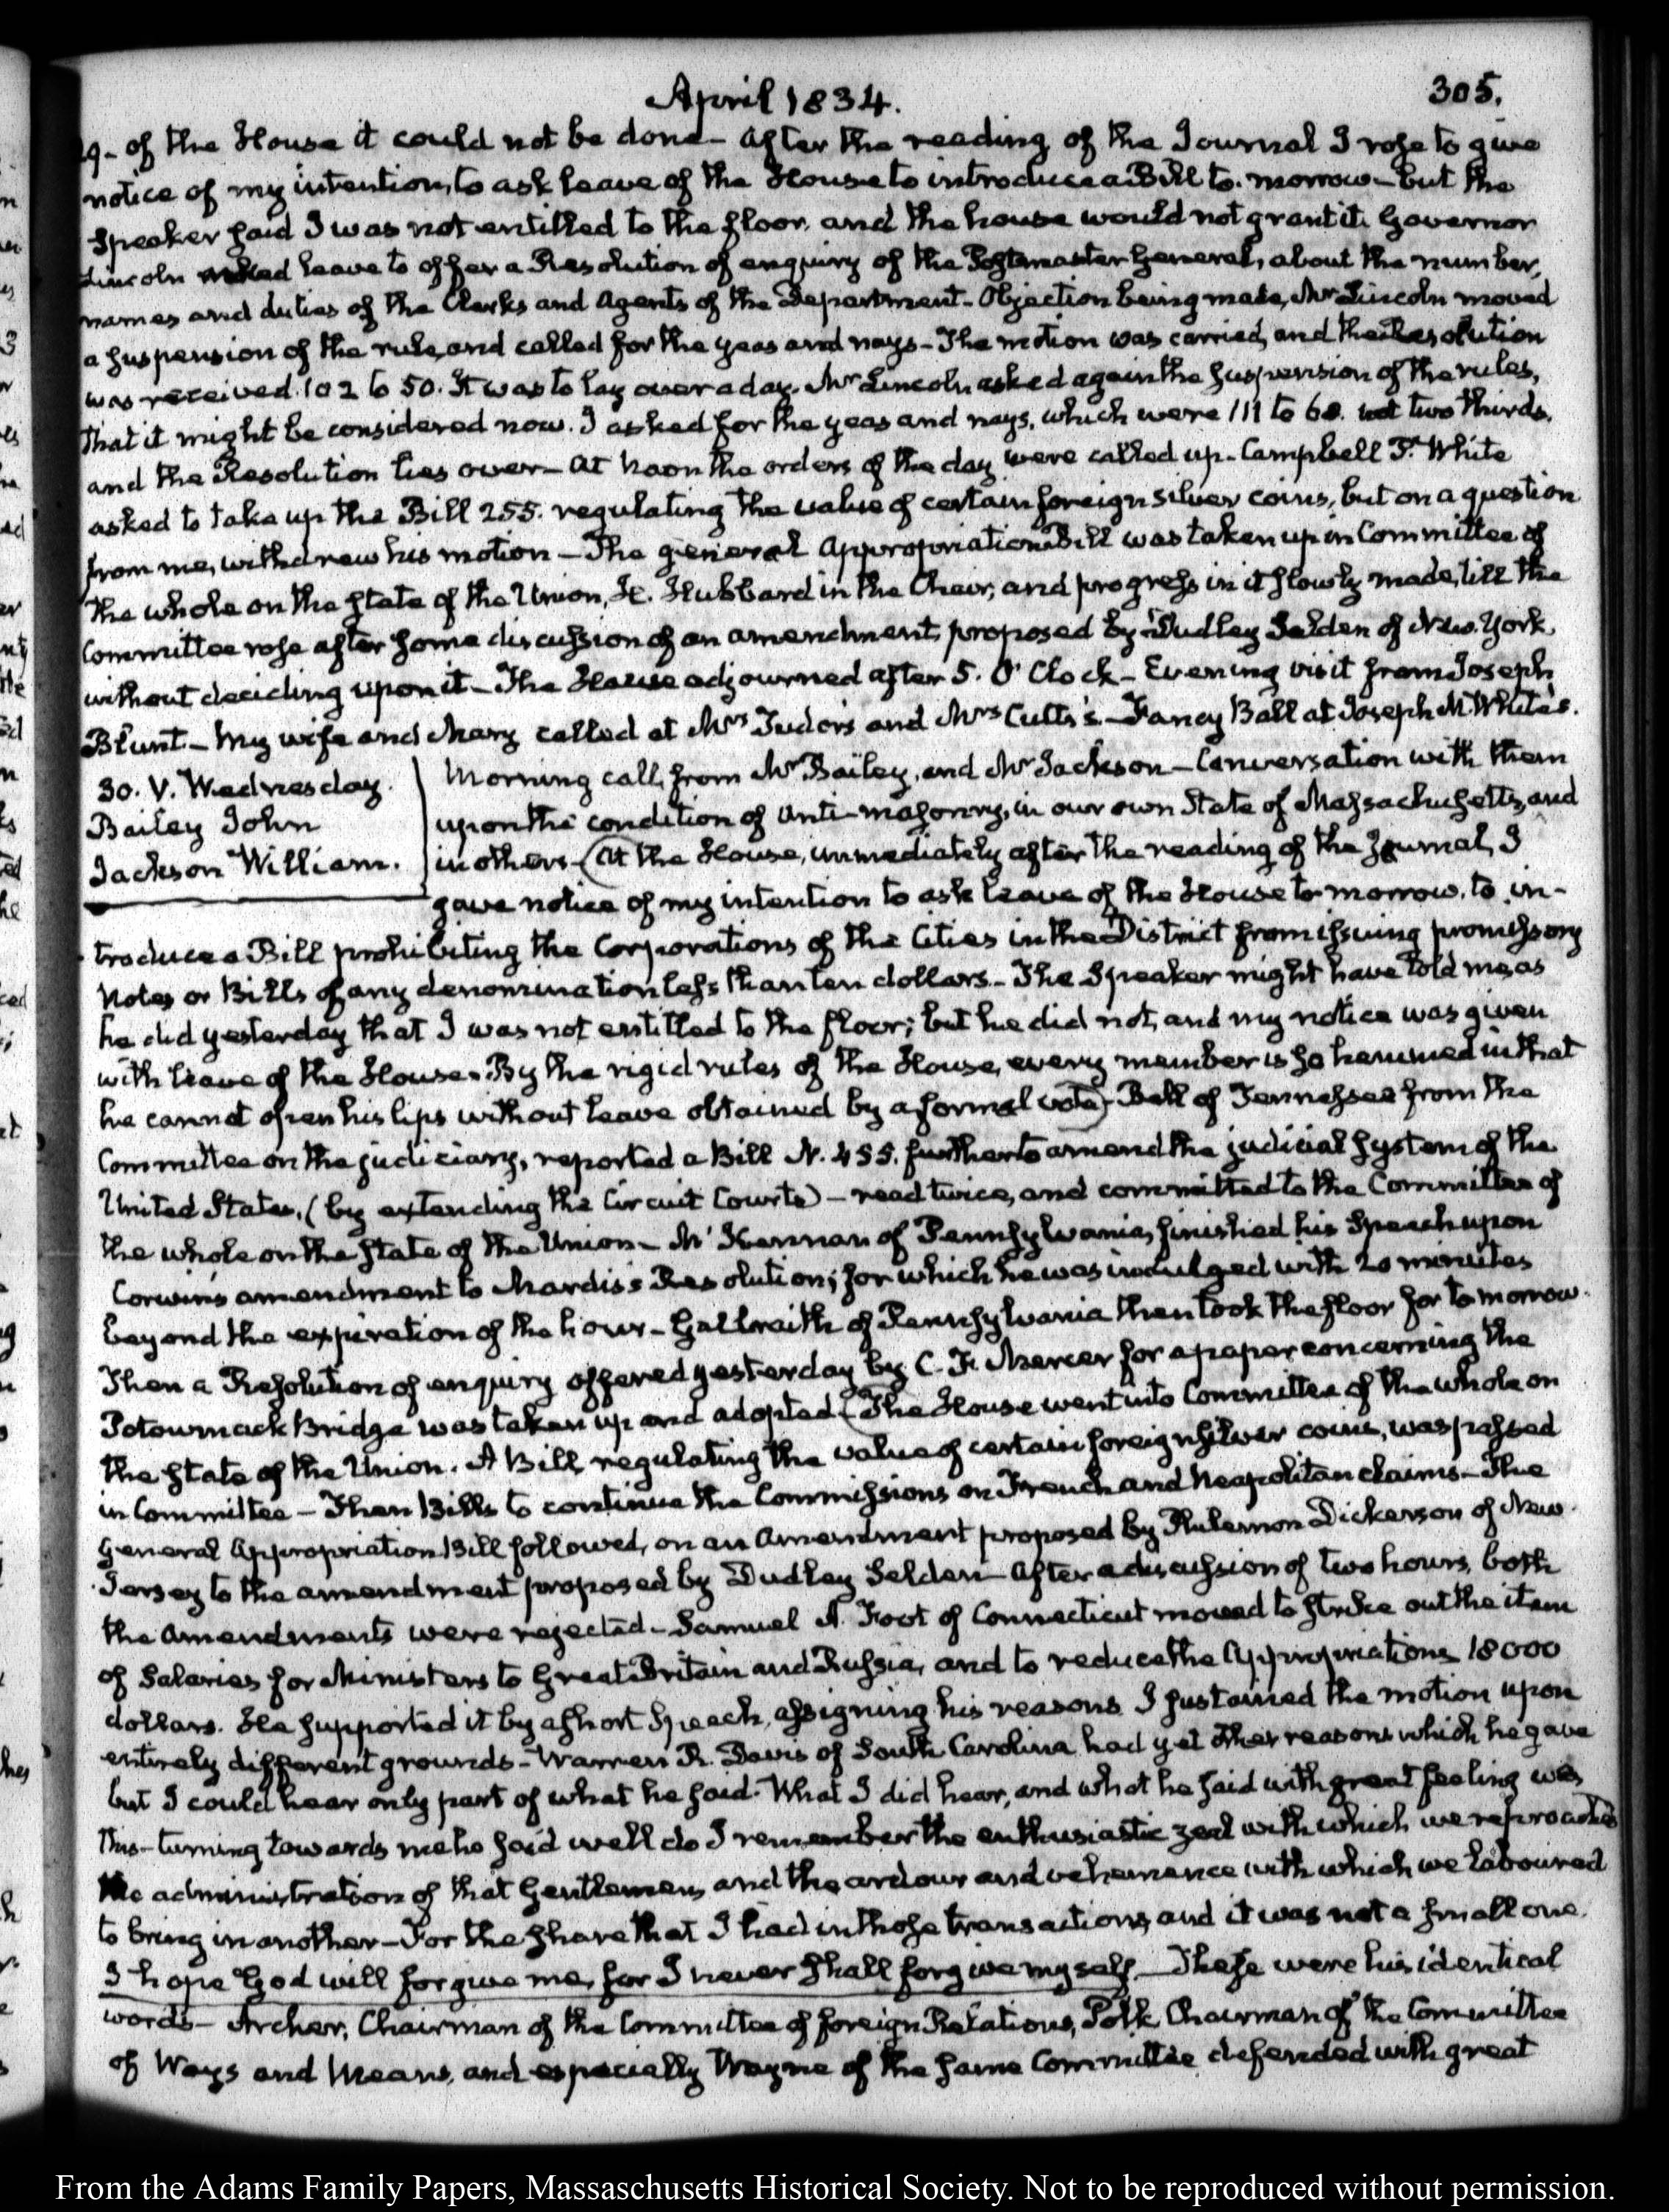 April 1834.
305.
29- of the House it could not be done - After the reading of the Journal I rose to give
notice of my intention, to ask leave of the House to introduce a Bill to-morrow - but the
Speaker said I was not entitled to the floor, and the house would not grant it. Governor
Lincoln asked leave to offer a Resolution of enquiry of the Postmaster General, about the number,
names and duties of the Clerks and Agents of the Department - Objection being made, Mr Lincoln moved
a suspension of the rule, and called for the yeas and nays - The motion was carried, and the Resolution
was received. 102 to 50. It was to lay over a day. Mr Lincoln asked again the suspension of the rules,
that it might be considered now. I asked for the yeas and nays, which were 111 to 60. not two thirds.
and the Resolution lies over - At Noon the orders of the day were called up - Campbell P. White
asked to take up the Bill 255. regulating the value of certain foreign silver coins, but on a question
from me, withdrew his motion - The general Appropriation Bill was taken up in Committee of
the whole on the state of the Union, H. Hubbard in the Chair; and progress in it slowly made, till the
Committee rose after some discussion of an amendment, proposed by Dudley Selden of New-York,
without deciding upon it - The House adjourned after 5. O'Clock - Evening visit from Joseph
Blunt - My wife and Mary called at Mrs Tudor's and Mrs Cutts's - Fancy Ball at Joseph M. White's.
30. V. Wednesday.
Bailey John
Jackson William.
Morning call, from Mr Bailey, and Mr Jackson - Conversation with them
upon the condition of Anti-masonry, in our own State of Massachusetts, and
in others - (At the House, immediately after the reading of the Journal, I
gave notice of my intention to ask leave of the House to morrow, to in-
troduce a Bill prohibiting the Corporations of the Cities in the District from issuing promissory
Notes or Bills of any denomination less than ten dollars. - The Speaker might have told me as
he did yesterday that I was not entitled to the floor; but he did not, and my notice was given
with leave of the House. By the rigid rules of the House, every member is so hemmed in that
he cannot open his lips without leave obtained by a formal vote) - Bell of Tennessee from the
Committee on the judiciary, reported a Bill N. 455. further to amend the judicial system of the
United States, (by extending the Circuit Courts) - read twice, and committed to the Committee of
the whole on the state of the Union - McKennan of Pennsylvania, finished his Speech upon
Corwin's amendment to Mardis's Resolution; for which he was indulged with 20 minutes
beyond the expiration of the hour - Galbraith of Pennsylvania then took the floor for to morrow.
Then a Resolution of enquiry offered yesterday by C. F. Mercer for a paper concerning the
Potowmack Bridge was taken up and adopted (The House went into Committee of the whole on
the state of the Union. A Bill regulating the value of certain foreign silver coins, was passed
in Committee - Then Bills to continue the Commissions on French and Neapolitan claims - The
General Appropriation Bill followed, on an Amendment proposed by Philemon Dickerson of New
Jersey to the amendment proposed by Dudley Selden - After a discussion of two hours, both
the Amendments were rejected - Samuel A. Foot of Connecticut moved to strike out the item
of Salaries for Ministers to Great Britain and Russia, and to reduce the Appropriations 18000
dollars. He supported it by a short Speech, assigning his reasons. I sustained the motion upon
entirely different grounds - Warren R. Davis of South Carolina had yet other reasons which he gave
but I could hear only part of what he said. What I did hear, and what he said with great feeling was
this - turning towards me he said well do I remember the enthusiastic zeal with which we reproached
the administration of that Gentleman, and the ardour and vehemence with which we laboured
to bring in another - For the share that I had in those transactions, and it was not a small one,
I hope God will forgive me, for I never shall forgive myself. - These were his identical
words - Archer, Chairman of the Committee of foreign Relations, Polk Chairman of the Committee
of Ways and Means, and especially Wayne of the same Committee defended with great
From the Adams Family Papers, Massachusetts Historical Society. Not to be reproduced without permission.